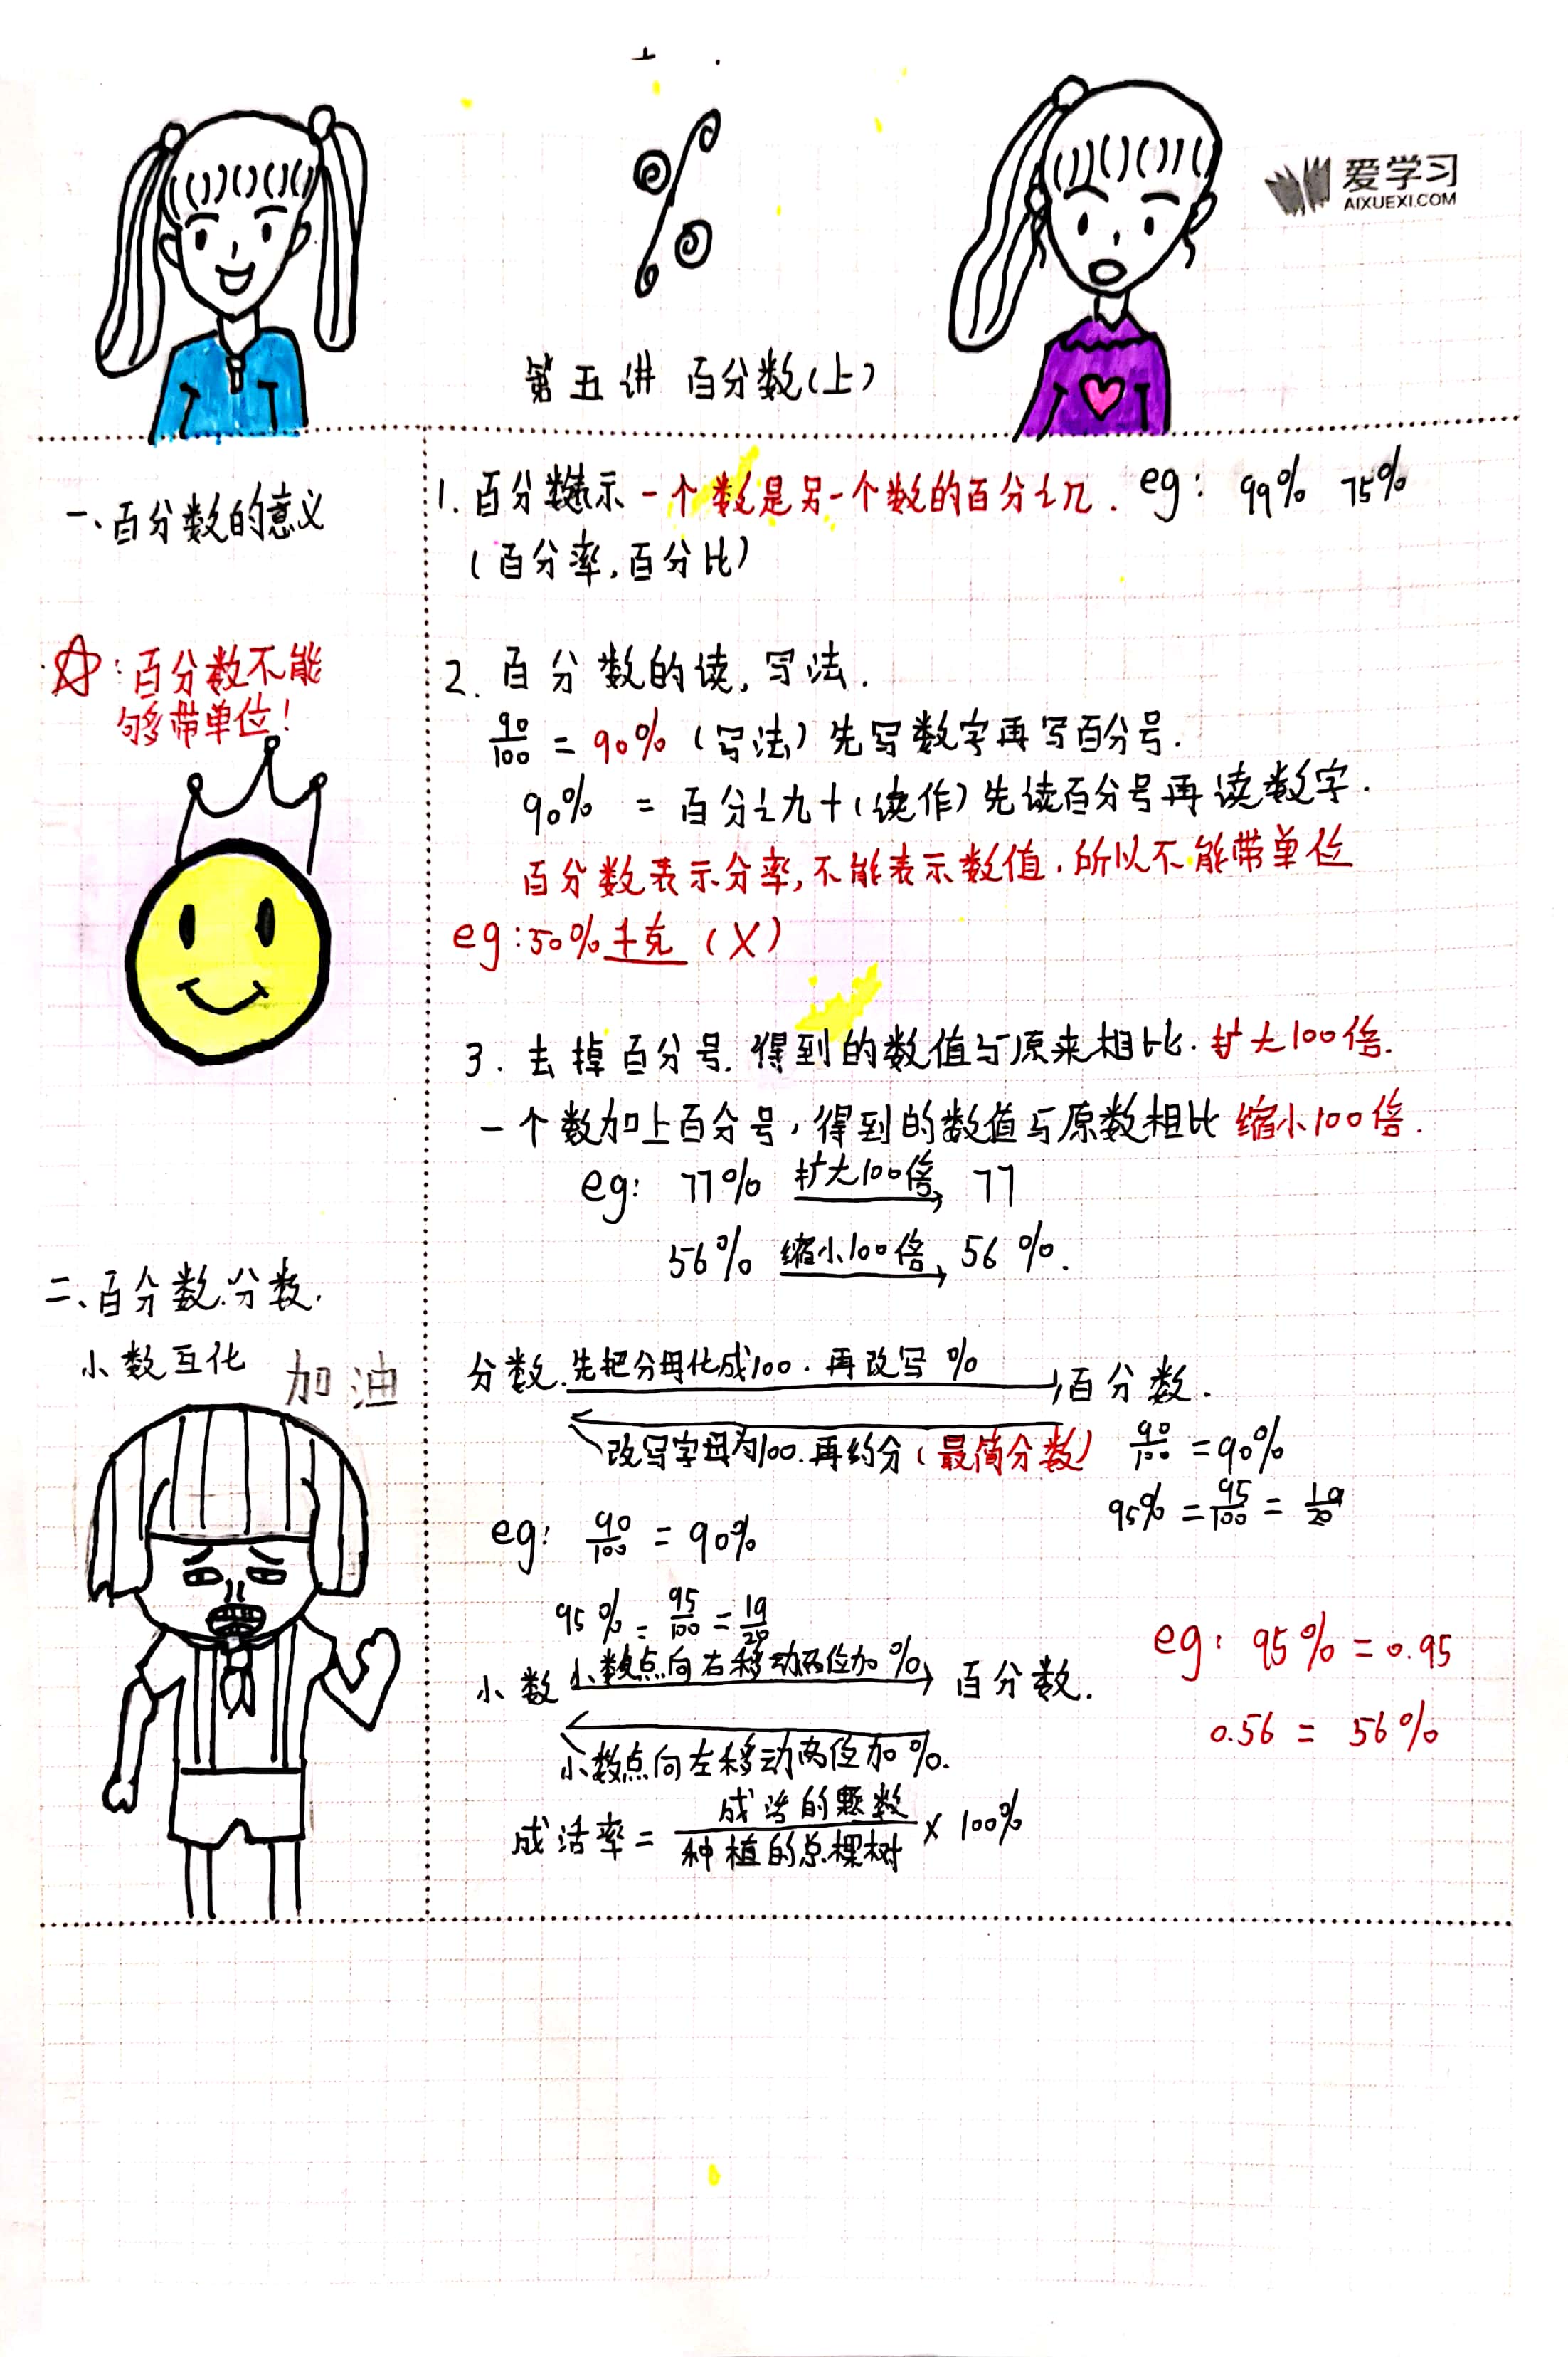 爱学习
AIXUEXI.COM
第五讲 百分数(上)
一、百分数的意义
1. 百分数表示一个数是另一个数的百分之几. eg: 99% 75%
(百分率,百分比)
☆:百分数不能
够带单位!
2. 百分数的读,写法.
90/100 = 90% (写法) 先写数字再写百分号.
90% = 百分之九十(读作) 先读百分号再读数字.
百分数表示分率,不能表示数值.所以不能带单位
eg:50%千克 (X)
3. 去掉百分号.得到的数值与原来相比.扩大100倍.
一个数加上百分号,得到的数值与原数相比 缩小100倍.
eg: 77% 扩大100倍 77
56% 缩小100倍 56%.
二、百分数.分数.
小数互化
加油
分数.先把分母化成100.再改写% 百分数.
改写字母为100.再约分(最简分数)
90/100 = 90%
95% = 95/100 = 19/20
eg: 90/100 = 90%
95% = 95/100 = 19/20
小数 小数点向右移动两位加% 百分数.
小数点向左移动两位加%.
eg: 95% = 0.95
0.56 = 56%
成活率 = 成活的颗数/种植的总棵树 × 100%